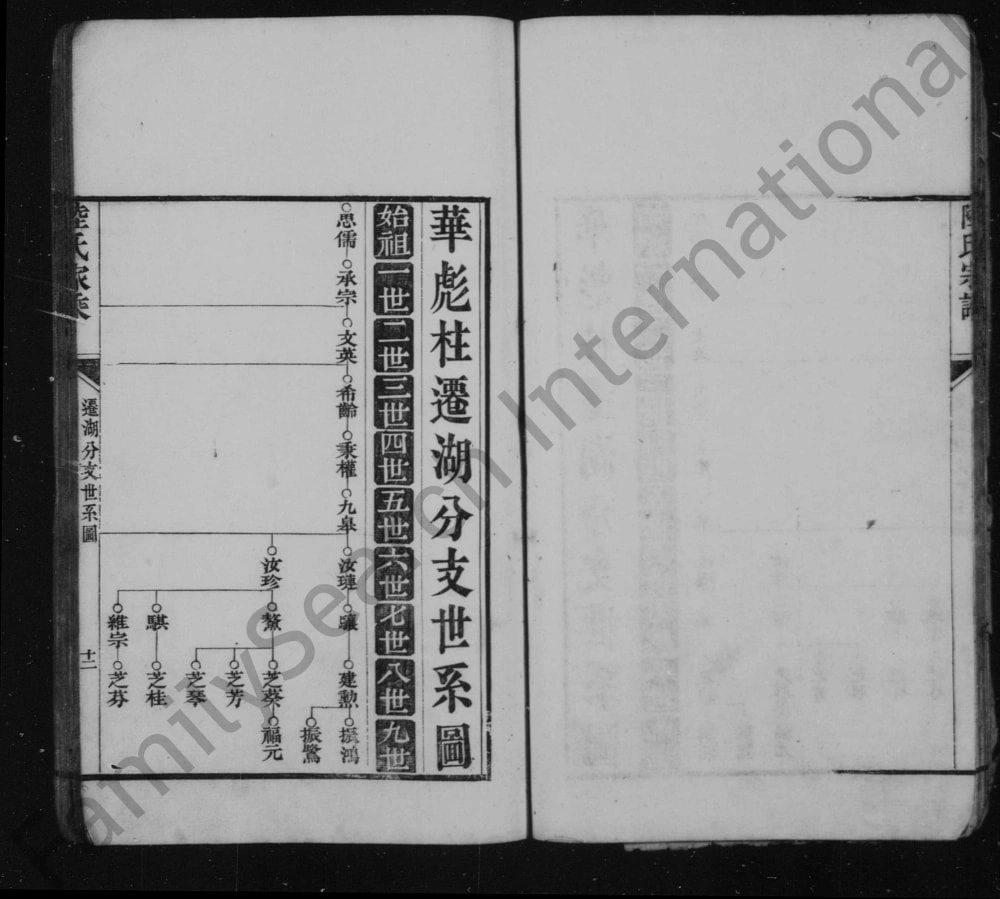 陸氏宗譜
華彪柱遷湖分支世系圖
始祖 一世 二世 三世 四世 五世 六世 七世 八世 九世
思儒 承宗 文英 希齡 秉權 九皋 汝璉 驤 建勲 振鴻
振鷺
汝珍 鰲 芝葵 福元
芝芳
芝琴
騏 芝桂
維宗 芝芬
陸氏家乘
遷湖分支世系圖
十二
FamilySearch International